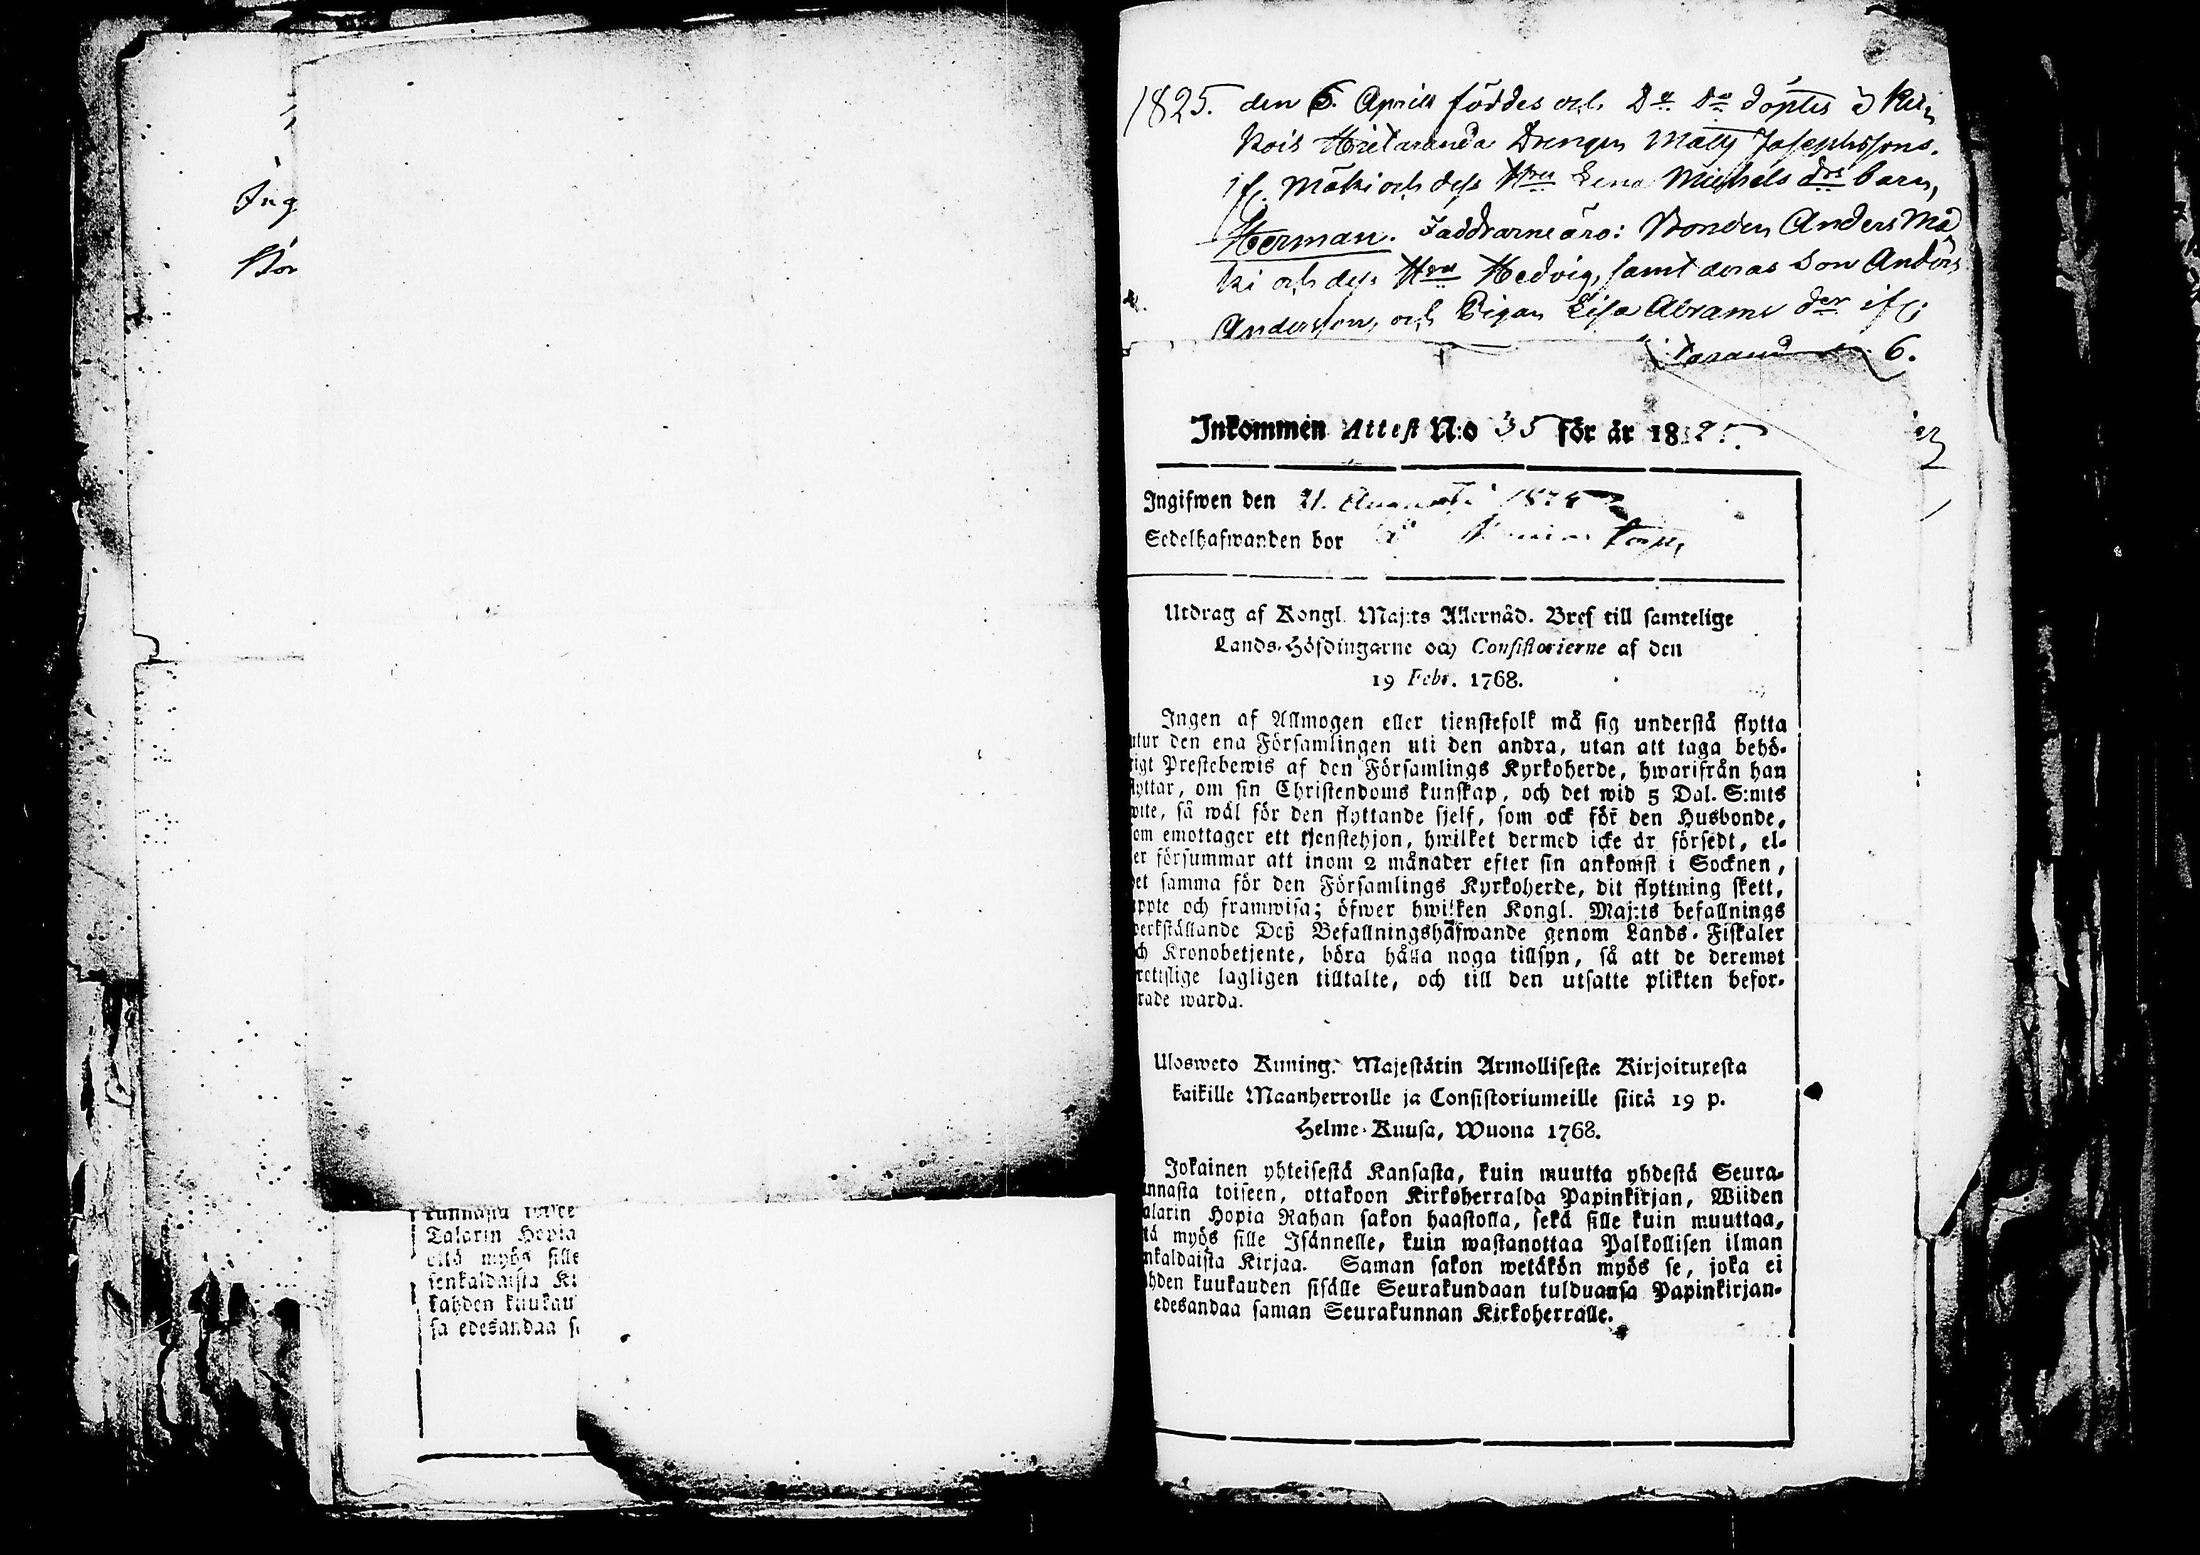 Ing
Bor
kunnasta toisee
Talarin Hopia
että myös sille
senkaldaista Ki
kahden kuukau
sa edesandaa s
1825. den 6. Aprill föddes och Do Do döptes i Kui
vois Hietaranda Drengen Matts Josephssons.
if. Mäki och dess Hru Lena Michels dr barn,
Herman. Faddrarne äro: Bonden Anders Mä
ki och dess Hru Hedvig, samt deras Son Anders
Andersson, och Pigan Lisa Abrams der if.
6.
Inkommen Attest N:o 35 för år 1825.
Ingifwen den 21. Augusti 1825
Sedelhafwanden bor
Utdrag af Kongl. Maj:ts Allernåd. Bref till samtelige
Lands-Höfdingarne och Consistorierne af den
19 Febr. 1768.
Ingen af Allmogen eller tienstefolk må sig understå flytta
utur den ena Församlingen uti den andra, utan att taga behö-
rigt Prestebewis af den Församlings Kyrkoherde, hwarifrån han
flyttar, om sin Christendoms kunskap, och det wid 5 Dal. S:mts
wite, så wäl för den flyttande sjelf, som ock för den Husbonde,
som emottager ett tjenstehjon, hwilket dermed icke är försedt, el-
er försummar att inom 2 månader efter sin ankomst i Socknen,
det samma för den Församlings Kyrkoherde, dit flyttning skett,
uppte och framwisa; öfwer hwilken Kongl. Maj:ts befallnings
werkställande Deß Befallningshafwande genom Lands-Fiskaler
ch Kronobetjente, böra hålla noga tillsyn, så att de deremot
brottslige lagligen tilltalte, och till den utsatte plikten befor-
rade warda.
Ulosweto Kuning. Majestätin Armollisesta Kirjoituxesta
kaikille Maanherroille ja Consistoriumeille siitä 19 p.
Helme-Kuusa, Wuona 1768.
Jokainen yhteisestä Kansasta, kuin muutta yhdestä Seura-
unnasta toiseen, ottakoon Kirkoherralda Papinkirjan, Wiiden
alarin Hopia Rahan sakon haastolla, sekä sille kuin muuttaa,
tä myös sille Isännelle, kuin wastanottaa Palkollisen ilman
nkaldaista Kirjaa. Saman sakon wetäkön myös se, joka ei
ahden kuukauden sisälle Seurakundaan tulduansa Papinkirjan-
edesandaa saman Seurakunnan Kirkoherralle.